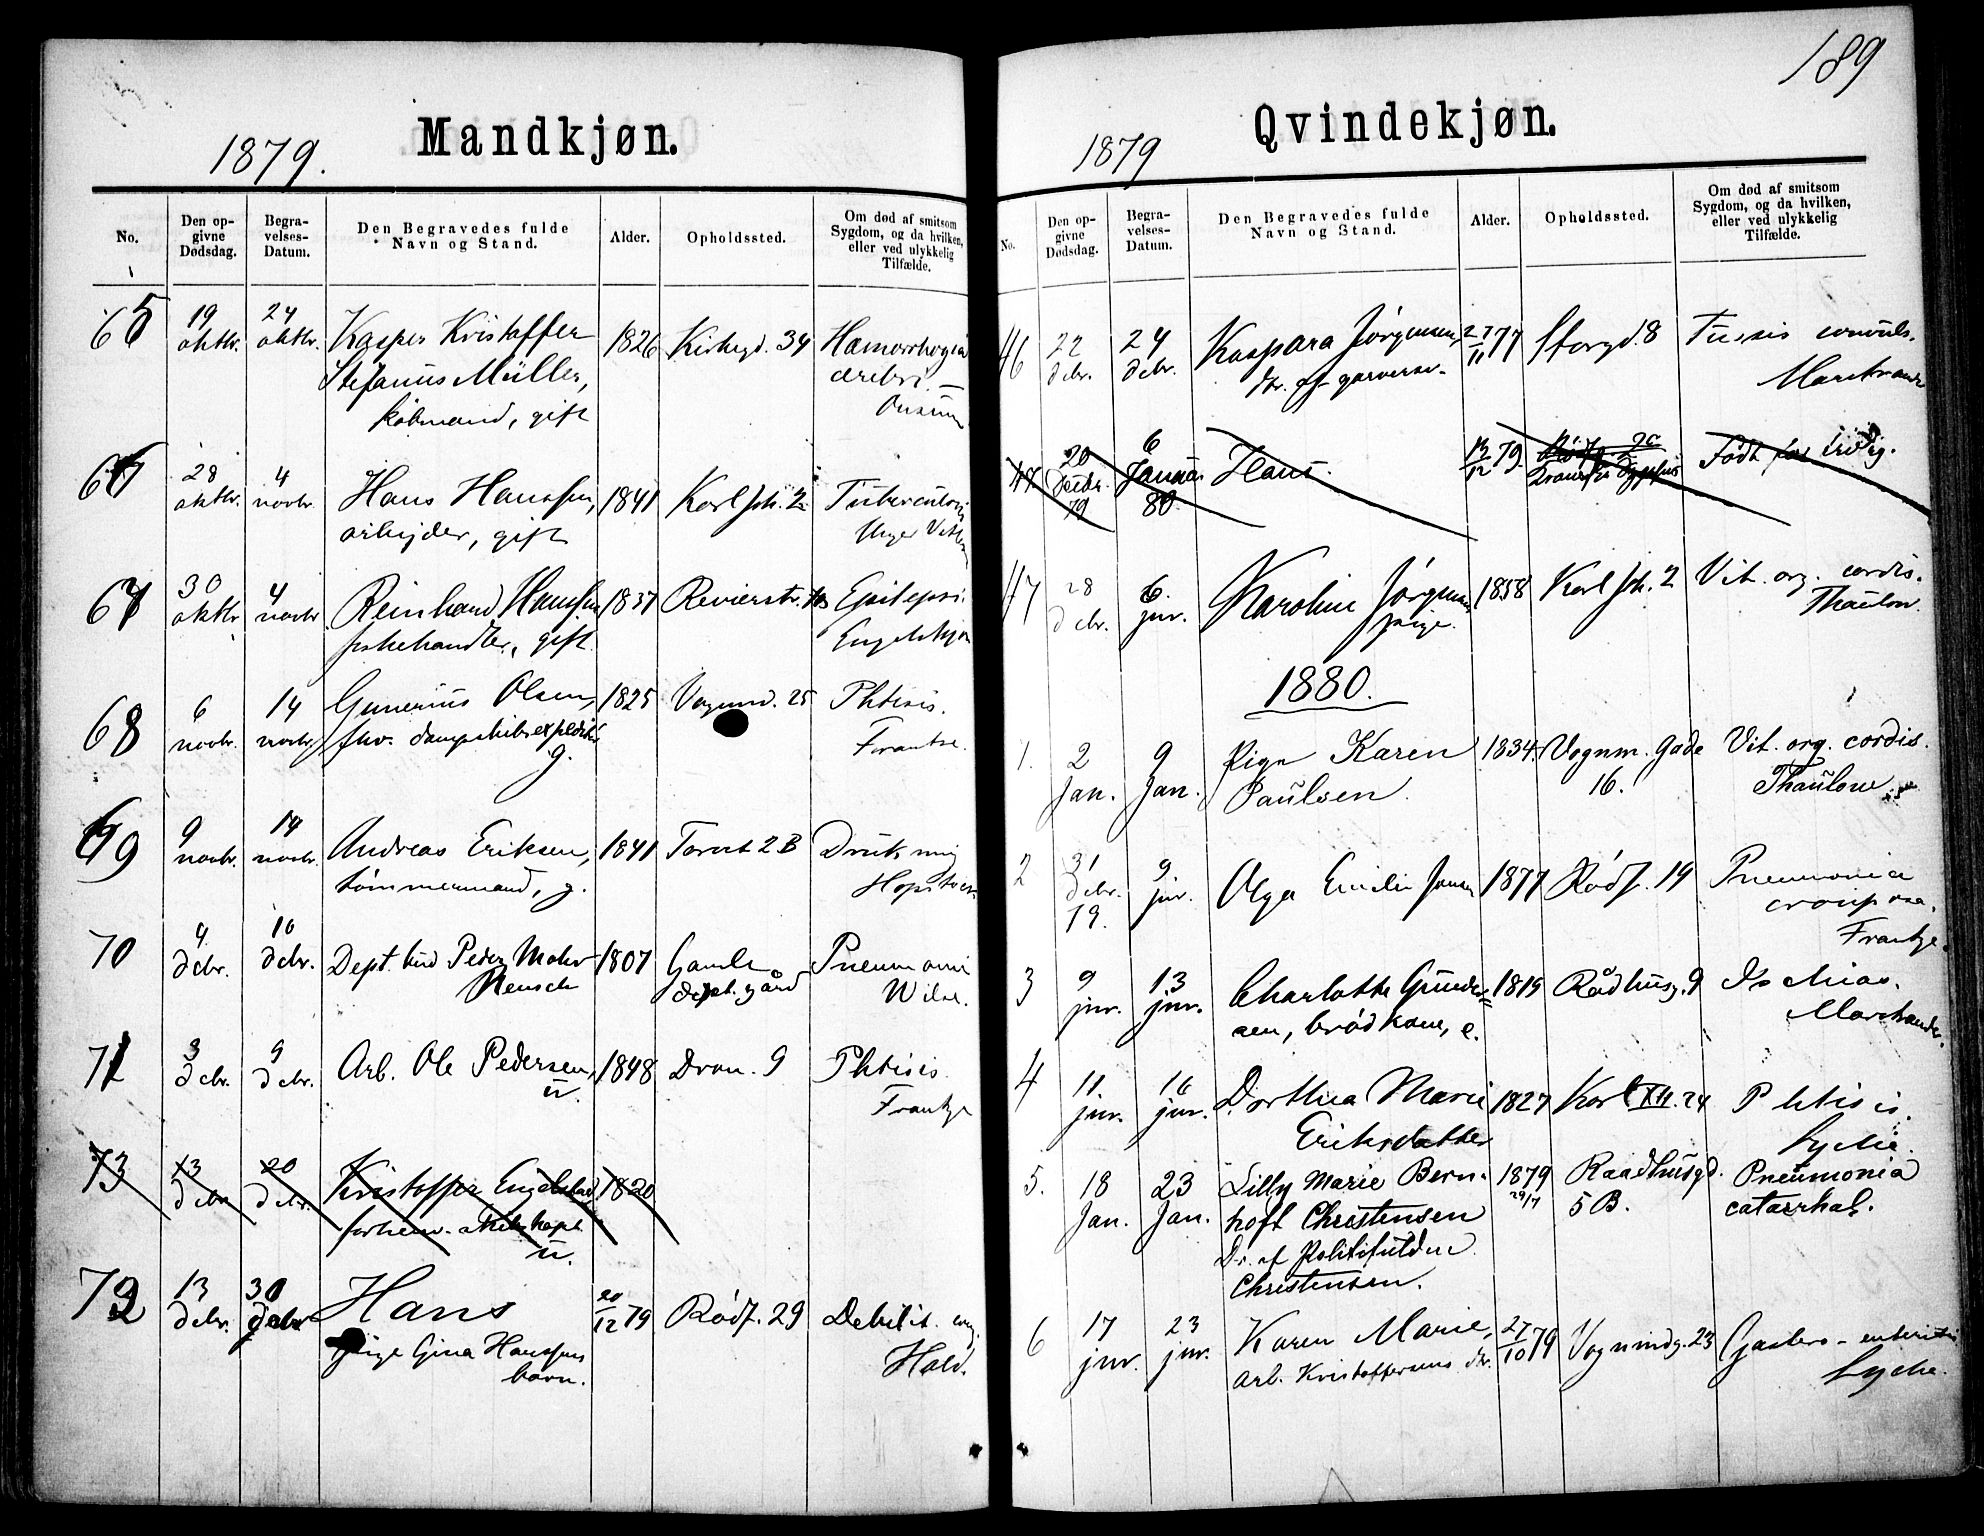 189
1879.
Mandkjøn.
No.
Den op-
givne
Dødsdag.
Begra-
velses-
Datum.
Den Begravedes fulde
Navn og Stand.
Alder.
Opholdssted.
Om død af smitsom
Sygdom, og da hvilken,
eller ved ulykkelig
Tilfælde.
65 19 oktbr. 24 oktbr. Kasper Kristoffer 1826 Kirkegd. 34 Hæmorrhagia
Stefanus Müller, cerebri
købmand, gift
66 28 oktbr. 4 novbr. Hans Hanssen, 1841 Karl Joh. 2
arbejder, gift
67 30 oktbr 4 novbr Reinhard Hanssen 1837 Revierstr. Epilepsi.
fiskehandler, gift
68 6 novbr. 14 novbr Gunerius Olsen, 1825 Vognmd. 25 Phtisis.
fhv. dampskibsexpeditør Frantze.
g.
69 9 novbr. 14 novbr. Andreas Eriksen, 1841 Torvet 2 B
tømmermand, g.
70 4 debr. 10 debr. Dept. bud Peder 1807 Gamle Pneumoni
Rensch dept. gård
71 3 debr. 9 debr. Arb. Ole Pedersen, 1848 Dron. 9 Phtisis.
u. Frantze
73 13 debr 20 debr. Kristoffer Engelstad 1820
forhenv. skibskapt
u.
72 13 debr. 30 debr Hans 20/12 79 Rådf. 29 Debilit.
pige Gina Hanssens Hald.
barn.
1879
Qvindekjøn.
No.
Den op-
givne
Dødsdag.
Begra-
velses-
Datum.
Den Begravedes fulde
Navn og Stand.
Alder.
Opholdssted.
Om død af smitsom
Sygdom, og da hvilken,
eller ved ulykkelig
Tilfælde.
46 22 debr. 24 debr. Kaspara Jørgensen, 77 Storgd. 8 Tussis convuls.
dtr. af garversv.
47 20 Decbr. 79 6 Januar 80. Hans. 79. Født for tidlig.
47 28 debr. 6. jnr. Karoline Jørgensen 1858 Karl Joh. 2 Vit. org. cordis.
pige. Thaulow.
1880.
1. 2 Jan. 9 Jan. Pige Karen 1834. Vognm. Gade Vit. org. cordis.
Paulsen. 16. Thaulow.
2 31 debr. 79. 9. jnr. Olga Emilie Jansen 1877 Rådf. 19 Pneumonia
crouposa.
Frantze.
3 9 jnr. 13 jnr. Charlotte Gunder- 1819 Rådhusg. 9 Ischias.
sen, brødkone, e.
4 11 jnr. 16 jnr. Dorthea Marie 1827 Karl XII. 24 Phtisis.
Eriksdatter Lyche.
5. 18 Jan. 23 Jan. Lilly Marie Bern- 1879 Raadhusgd. Pneumonia
hoft Christensen 5 B. catarrhal.
Dr. af Politifuldm.
Christensen.
6 17 jnr. 23 jnr. Karen Marie, 27/10 79 Vognmdg. 23 Gastero-enteritis
arb. Kristoffersens dtr. Lyche.